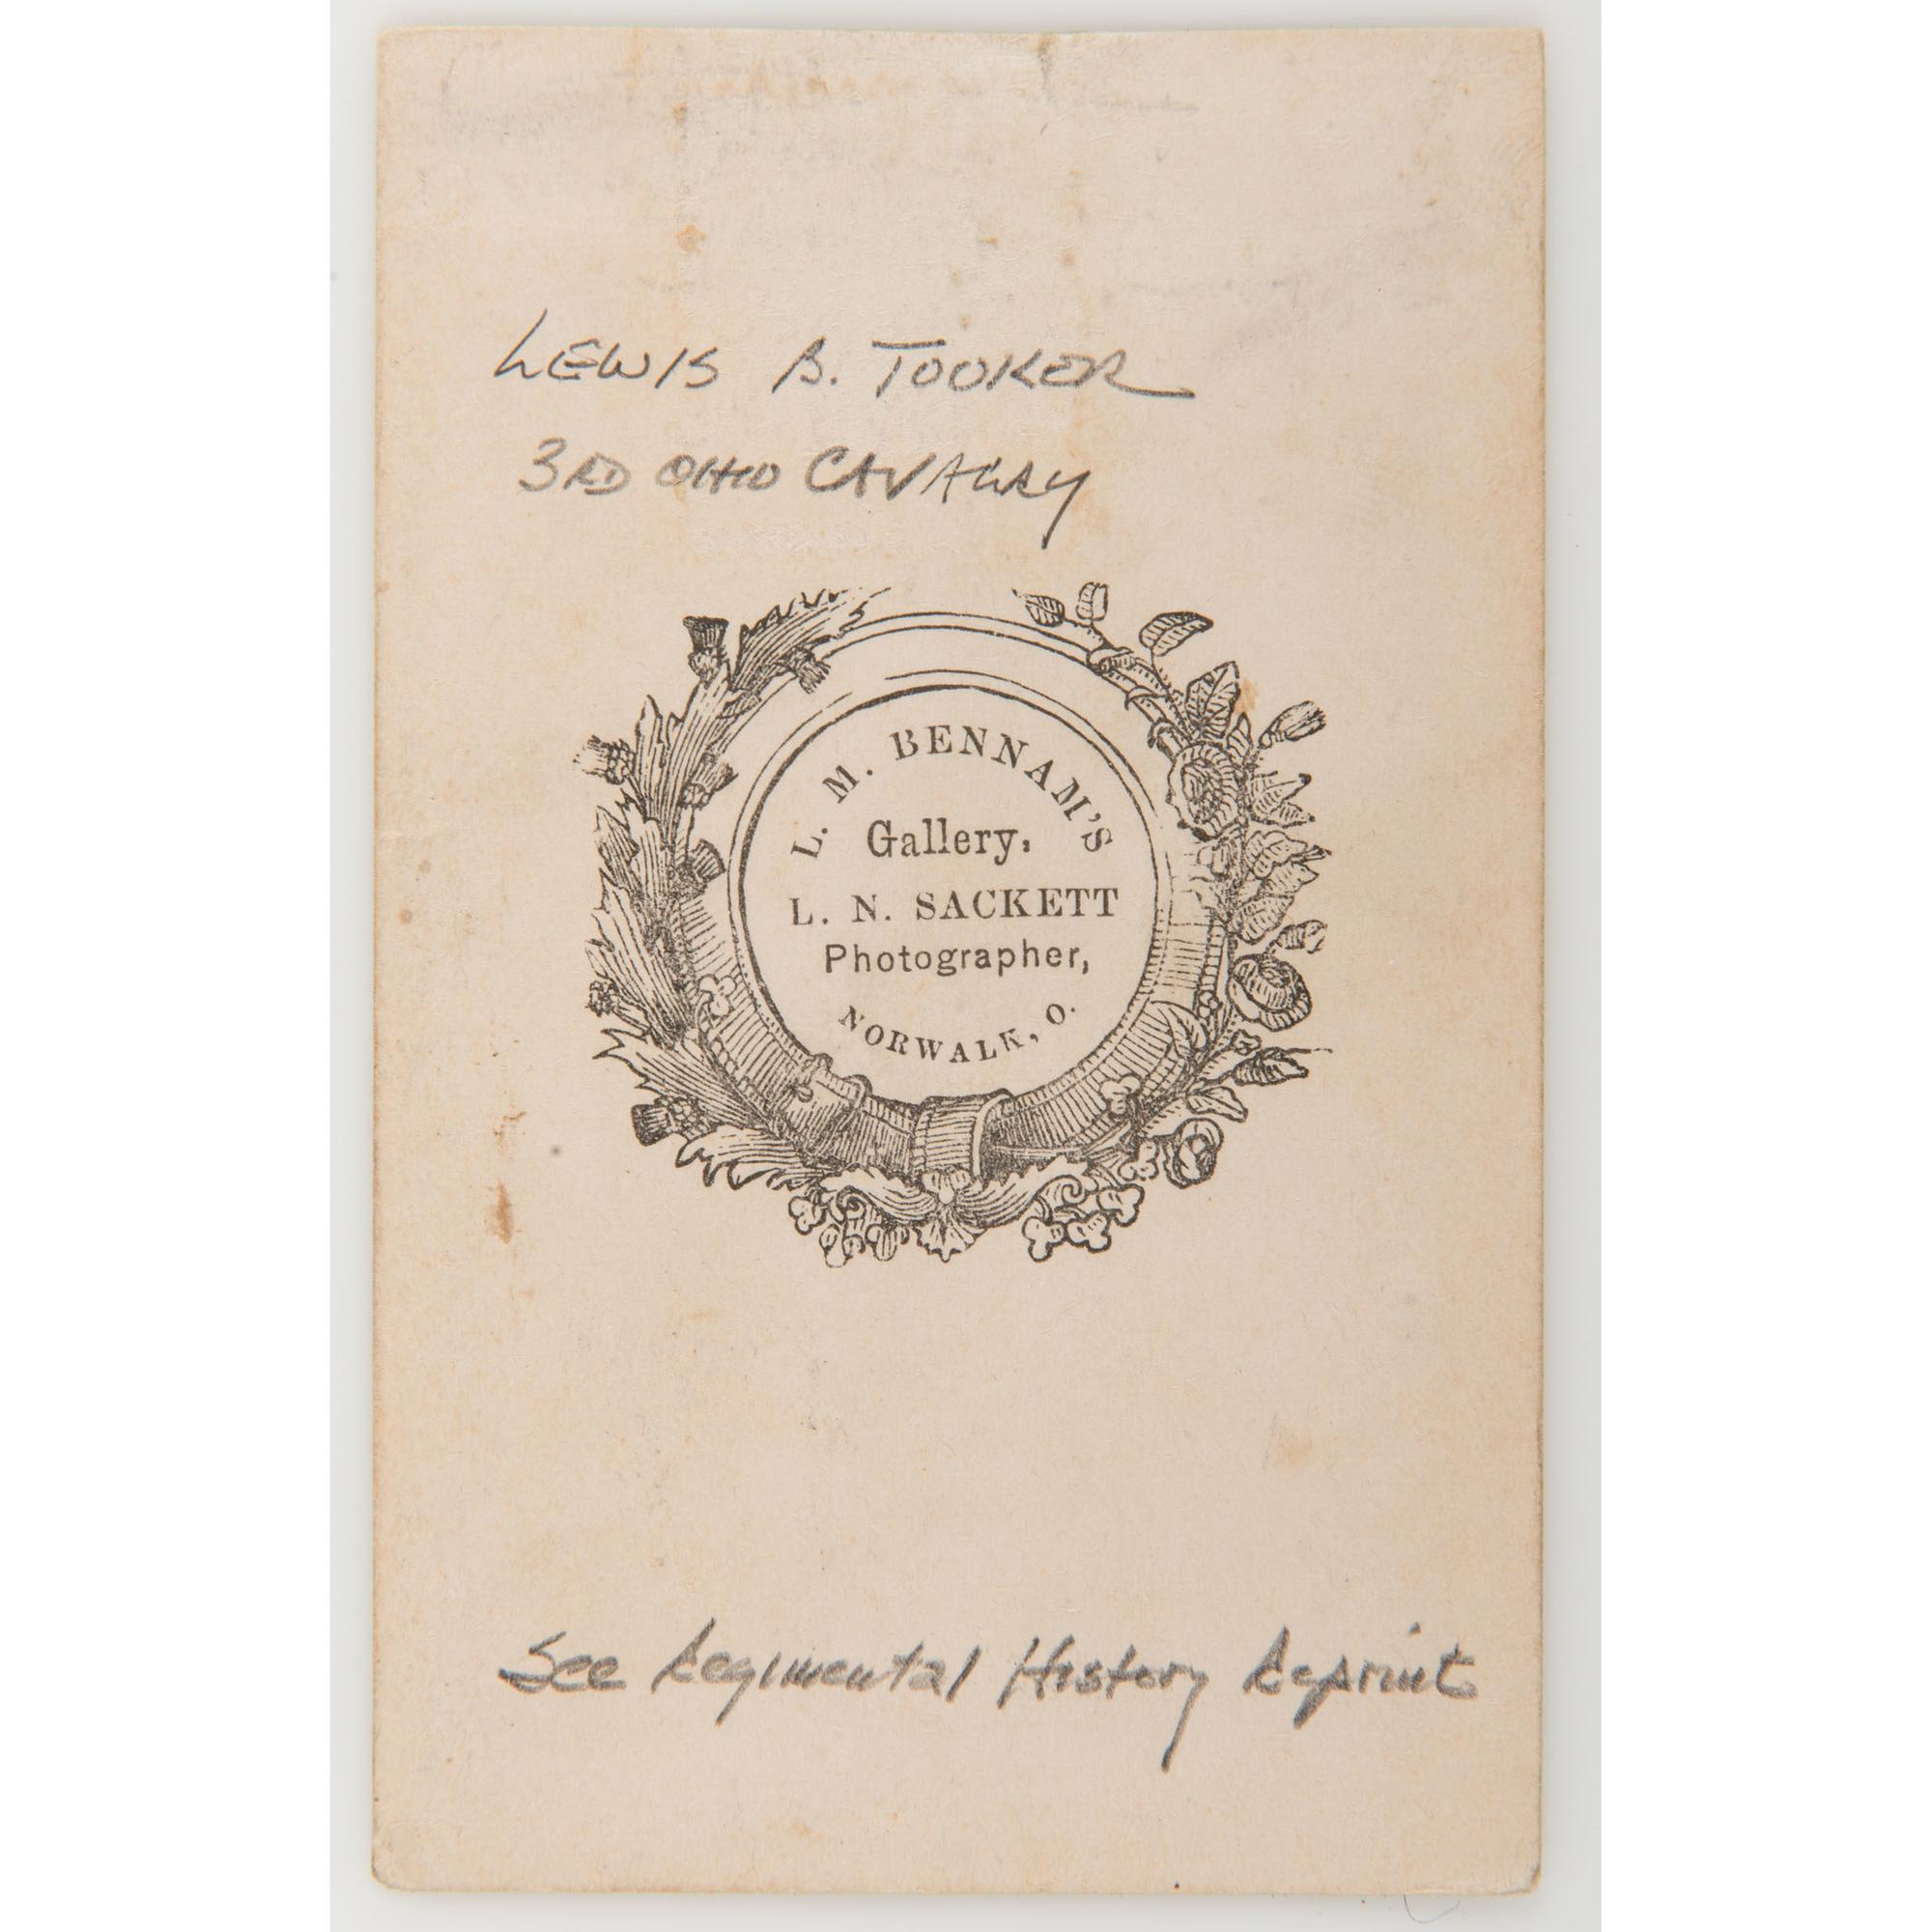 LEWIS B. TOOKER
3RD OHIO CAVALRY
L. M. BENNAM'S
Gallery.
L. N. SACKETT
Photographer,
NORWALK, O.
See Regimental History Reprint